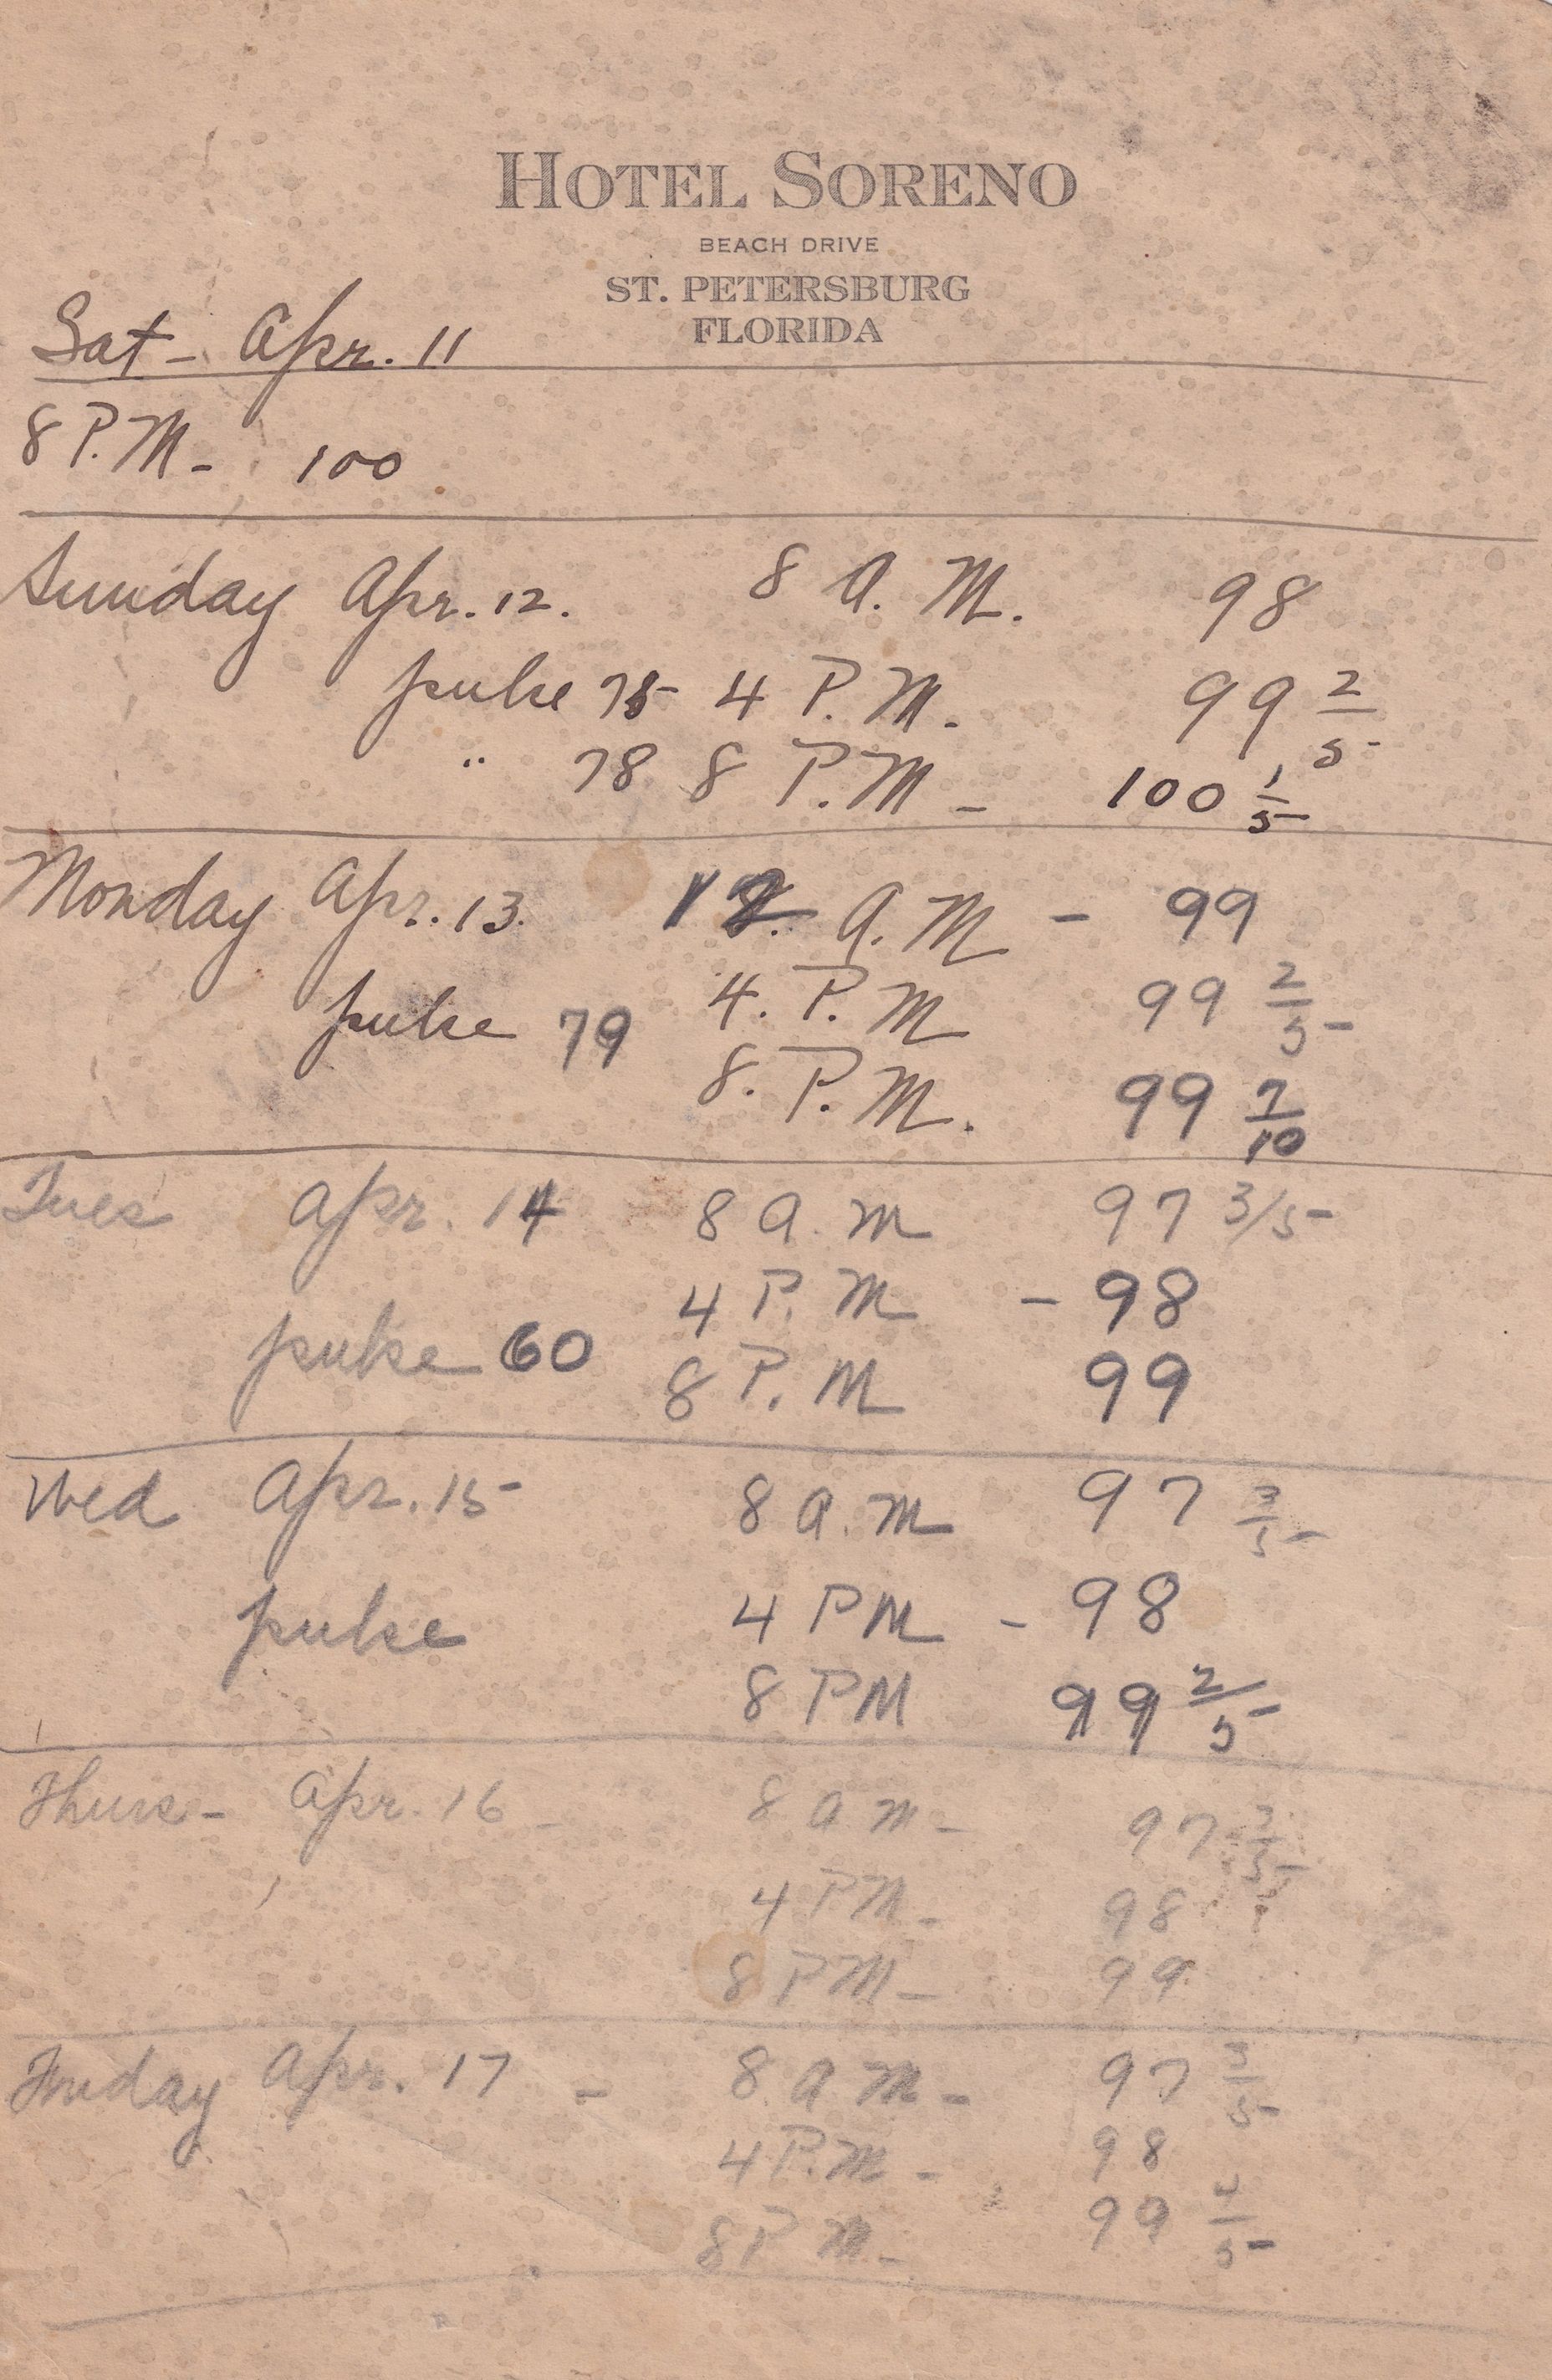 HOTEL SORENO
BEACH DRIVE
ST. PETERSBURG
FLORIDA
Sat - Apr. 11
8 P.M - 100
Sunday Apr. 12. 8 A. M. 98
pulse 75 4 P. M. 99 2/5
" 78 8 P. M - 100 1/5
Monday Apr. 13. 12 A. M - 99
4. P. M 99 2/5
pulse 79
8. P. M. 99 7/10
Tues Apr. 14 8 A. M 97 3/5
4 P. M - 98
pulse 60
8 P. M 99
Wed Apr. 15 8 A. M 97 3/5
pulse 4 PM - 98
8 PM 99 2/5
Thurs - Apr. 16 8 A M - 97 3/5
4 PM - 98
8 PM - 99
Friday Apr. 17 - 8 A M - 97 3/5
4 P. M - 98
8 P M - 99 4/5